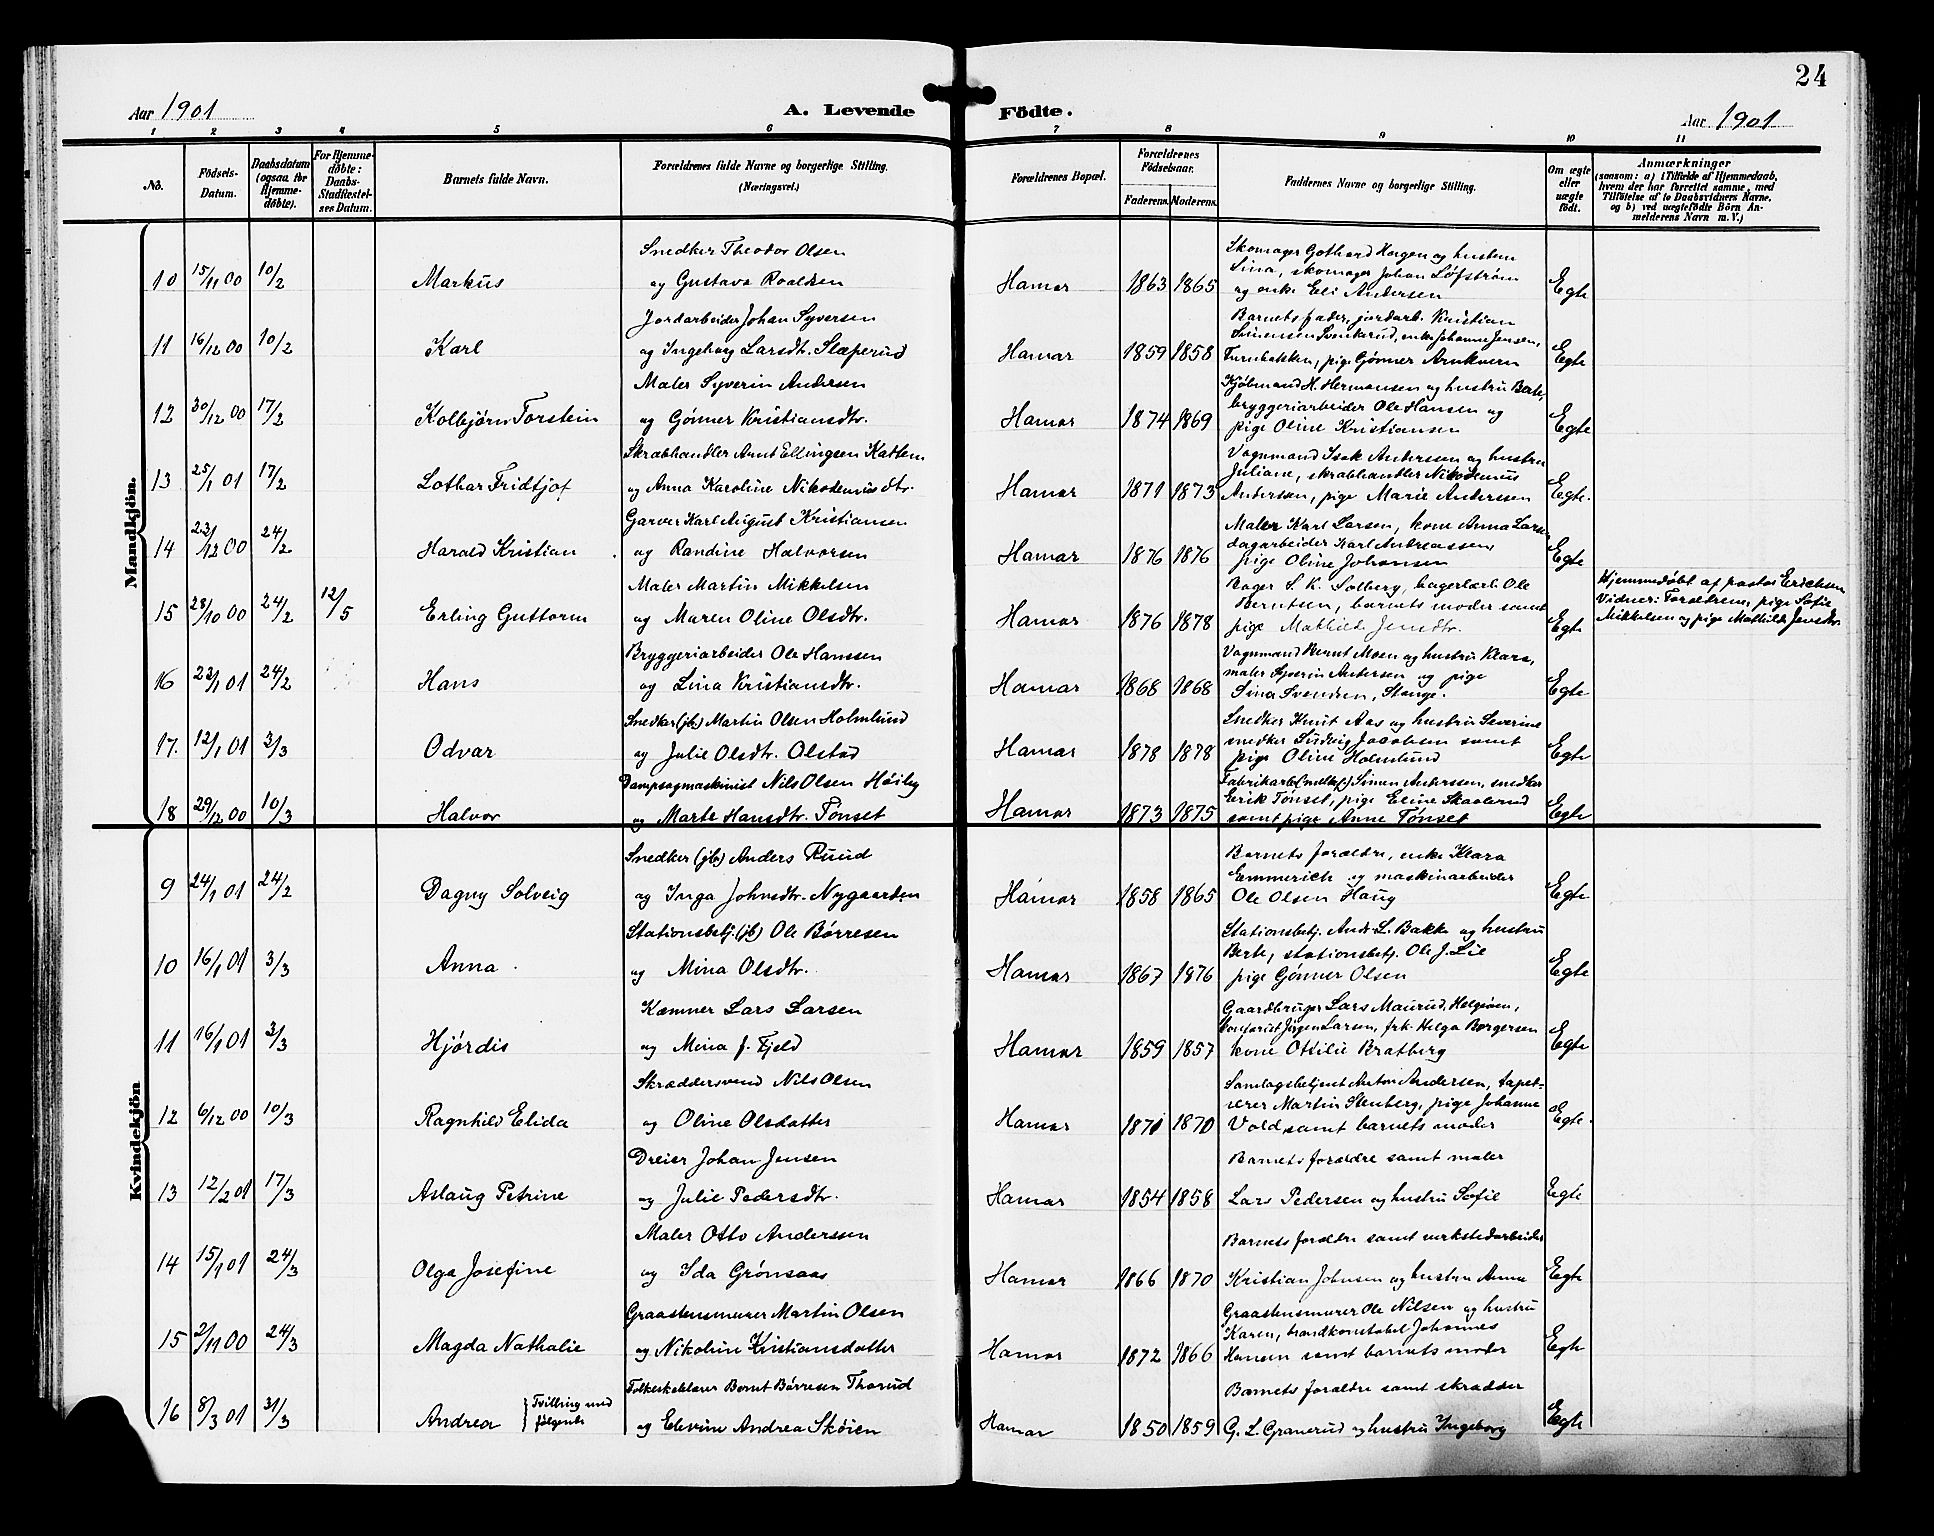 24
Aar 1901 A. Levende Födte. Aar 1901
1 2 3 4 5 6 7 8 9 10 11
No. Födsels-Datum. Daabsdatum (ogsaa for Hjemme-döbte). For Hjemme-döbte: Daabs-Stadfæstel-ses Datum. Barnets fulde Navn. Forældrenes fulde Navne og borgerlige Stilling. (Næringsvei.) Forældrenes Bopæl. Forældrenes Födselsaar. Faderens. Moderens. Faddernes Navne og borgerlige Stilling. Om ægte eller uægte födt. Anmærkninger (saasom: a) i Tilfælde af Hjemmedaab, hvem der har forrettet samme, med Tilföielse af to Daabsvidners Navne, og b) ved uægtefödte Börn An-melderens Navn m. V.)
Mandkjön.
Snedker Theodor Olsen
10 15/11 00 10/2 Markus og Gustava Roaldsen Hamar 1863 1865 Skomager Gothard Hagen og hustru
Lina, skomager Johan Löfström
og enke Eli Andersen Egte
Jordarbeider Johan Syversen
11 16/12 00 10/2 Karl og Ingeborg Larsdtr. Slæperud Hamar 1859 1858 Barnets fader, jordarb. Kristian
Simensen Svenkerud, enke Johanne Jensen,
Furubakken, pige Gønner Arnkværn Egte
Maler Syverin Andersen
12 30/12 00 17/2 Kolbjørn Torstein og Gønner Kristiansdtr. Hamar 1874 1869 Kjøbmand H. Hermansen og hustru Berte,
bryggeriarbeider Ole Hansen og
pige Oline Kristiansen Egte
Skrabhandler Arnt Ellingsen Kattem
13 25/1 01 17/2 Lothar Fridtjof og Anna Karoline Nikodemusdtr. Hamar 1871 1873 Vognmand Isak Anderssen og hustru
Juliane, skrabhandler Nikodemus
Andersen, pige Marie Anderssen Egte.
Garver Karl August Kristiansen
14 23/12 00 24/2 Harald Kristian og Randine Halvorsen Hamar 1876 1876 Maler Karl Larsen, kone Anna Larsen
dagarbeider Karl Andreassen,
pige Oline Johansen Egte
Maler Martin Mikkelsen
15 28/10 00 24/2 12/5 Erling Guttorm og Maren Oline Olsdtr. Hamar 1876 1878 Bager S. K. Solberg, bagerlærl. Ole
Berntsen, barnets moder samt
pige Mathilde Jensdtr. Egte
Hjemmedøbt af pastor Erichsen
Vidner: Forældrene, pige Sofie
Mikkelsen og pige Mathilde Jensdtr.
Bryggeriarbeider Ole Hanssen
16 23/1 01 24/2 Hans og Lina Kristiansdtr. Hamar 1868 1868 Vognmand Bernt Moen og hustru Klara,
maler Syverin Andersen og pige
Sina Svendsen, Stange. Egte
Snedker (jb) Martin Olsen Holmlund
17. 12/1 01 3/3 Odvar og Julie Olsdtr. Olstad Hamar 1878 1878 Snedker Knut Aas og hustru Severine
snedker Ludvig Jacobsen samt
pige Oline Holmlund Egte
Dampsagmaskinist Nils Olsen Høiby
18 29/12 00 10/3 Halvor og Marte Hansdtr. Tønset Hamar 1873 1875 Simen Anderssen, snedker
Erik Tønset, pige Eline Skaalerud
samt pige Anne Tønset Egte
Kvindekjön
Snedker (jb) Anders Ruud
9 24/1 01 24/2 Dagny Solveig og Inga Johnsdtr. Nygaarden Hamar 1858 1865 Barnets forældre, enke Klara
Emmerich og maskinarbeider
Ole Olsen Haug Egte
Stationsbetj. (jb) Ole Børresen
10 16/1 01 3/3 Anna og Mina Olsdtr. Hamar 1867 1876 Stationsbetj. Andr. L. Bakke og hustru
Berte, stationsbetj. Ole J. Lie
pige Gønner Olsen Egte
Kæmner Lars Larsen
11 16/1 01 3/3 Hjørdis og Mina f. Fjeld Hamar 1859 1857 Gaardbruger Lars Maurud, Helgøen,
Jørgen Larsen, frk. Helga Borgersen
kone Ottilie Bratberg Egte
Skræddersvend Nils Olsen
12 6/12 00 10/3 Ragnhild Elida og Oline Olsdatter Hamar 1871 1870 Samlagsbetjent Anton Andersen, tapet-
serer Martin Stenberg, pige Johanne
Vold samt barnets moder Egte.
Dreier Johan Jensen
13 12/2 01 17/3 Aslaug Petrine og Julie Pedersdtr. Hamar 1854 1858 Barnets forældre samt maler
Lars Pedersen og hustru Sofie Egte
Maler Otto Anderssen
14 15/1 01 24/3 Olga Josefine og Ida Grønsaas Hamar 1866 1870 Barnets forældre samt verkstedarbeider
Kristian Johnsen og hustru Anna Egte
Graastensmurer Martin Olsen
15 2/11 00 24/3 Magda Nathalie og Nikoline Kristiansdatter Hamar 1872 1866 Graastensmurer Ole Nilsen og hustru
Karen, brandkonstabel Johannes
Hansen samt barnets moder Egte
Folkeskolelærer Bernt Børresen Thorud
16 8/3 01 31/3 Andrea Tvilling med følgende og Elevine Andrea Skøien Hamar 1850 1859 Barnets forældre samt skrædder
G. L. Granerud og hustru Ingeborg Egte